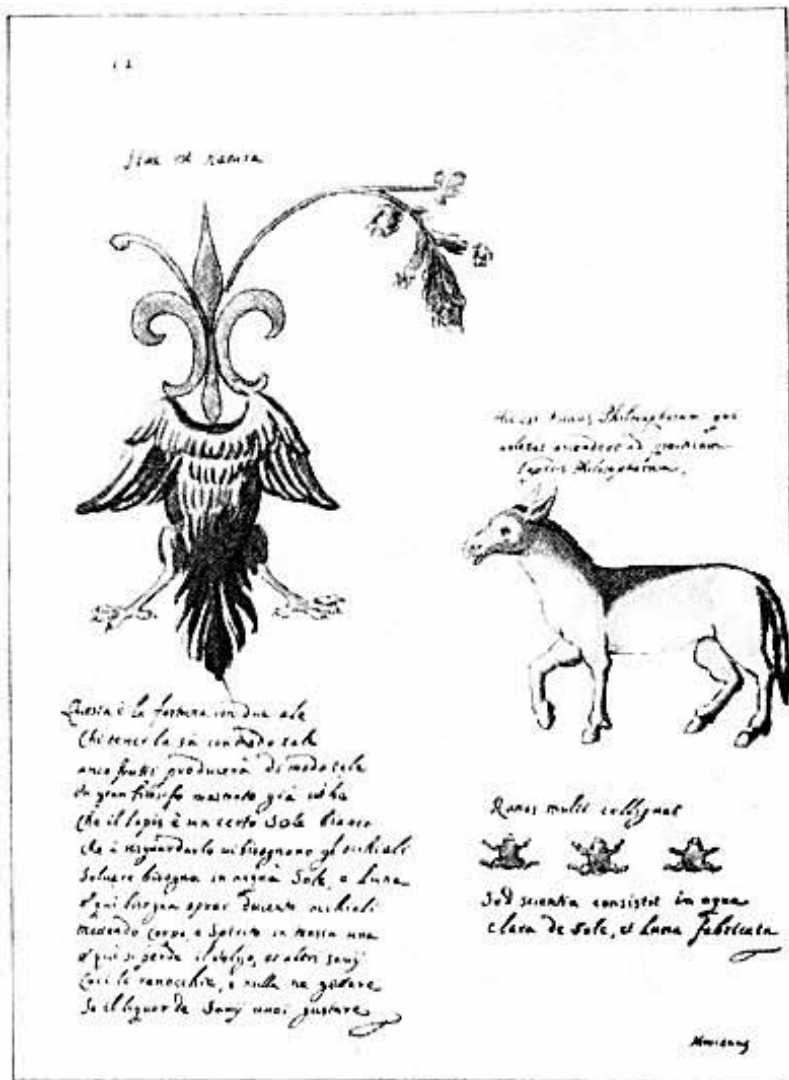 est natura
Philosophorum
ascendere ad
Lapidis Philosophorum
Questa è la fortuna con due ale
Chi tener la sà con modo tale
anco frutti produrerà di modo tale
Un gran filosofo mostrato già
Che il lapis è un certo Sole bianco
che à risguardarlo vi bisognono gl occhiali
Soluere bisogna in acqua Sole, e Luna
e qui bisogna oprar ducento occhiali
mettendo corpo, e Spirito in una
e qui si perde il volgo, et altri
Così le ranocchie, e nulla ne
Se il liquor de vuoi gustare
Ranas multi colligunt
Sed scientia consistit in aqua
clara de Sole, et Luna fabricata